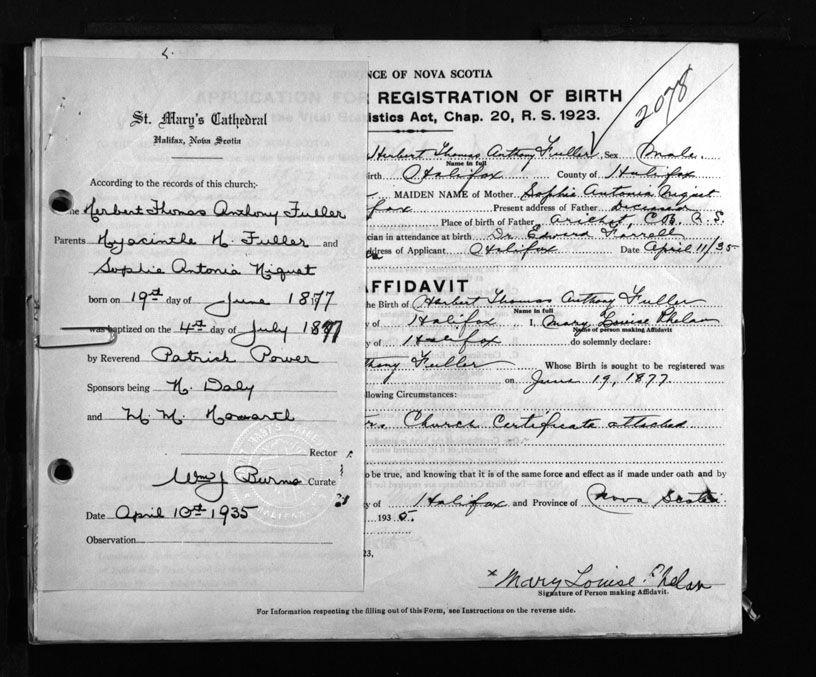 St. Mary's Cathedral
Halifax, Nova Scotia
According to the records of this church;-
Herbert Thomas Anthony Fuller
Parents Hyacinthe H. Fuller and
Sophia Antonia Niquet
born on 19th day of June 1877
was baptized on the 4th day of July 1877
by Reverend Patrick Power
Sponsors being N. Daly
and M. M. Howarth
Rector
Wm J Burns Curate
Date April 10th 1935
Observation
NCE OF NOVA SCOTIA
REGISTRATION OF BIRTH
istics Act, Chap. 20, R. S. 1923.
2078
Herbert Thomas Anthony Fuller Sex Male.
Name in full
irth Halifax County of Halifax
MAIDEN NAME of Mother Sophie Antonia Niquet
fax Present address of Father Deceased
Place of birth of Father Arichat, C.B. N.S.
cian in attendance at birth Dr. Edward Farrell
ddress of Applicant Halifax Date April 11/35
FFIDAVIT
he Birth of Herbert Thomas Anthony Fuller
Name in full
y of Halifax I, Mary Louise Phelan
Name of person making Affidavit
y of Halifax do solemnly declare:
thony Fuller Whose Birth is sought to be registered was
on June 19, 1877.
llowing Circumstances:
Church Certificate attached
o be true, and knowing that it is of the same force and effect as if made under oath and by
y of Halifax and Province of Nova Scotia
1935.
23,
x Mary Louise Phelan
Signature of Person making Affidavit.
For Information respecting the filling out of this Form, see Instructions on the reverse side.